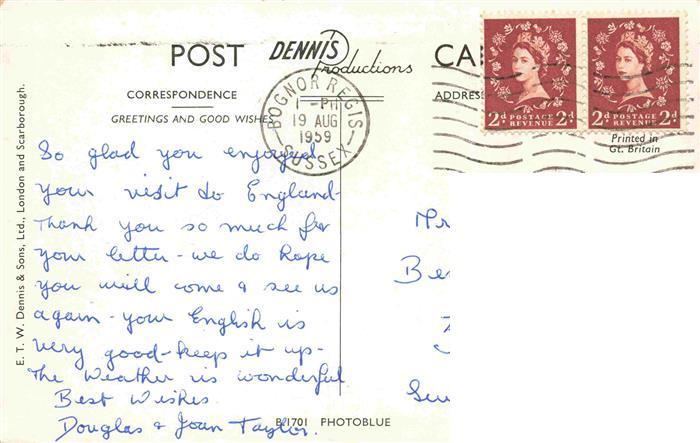 POST DENNIS Productions CA
CORRESPONDENCE ADDRESS
GREETINGS AND GOOD WISHES
BOGNOR REGIS
1-PM
19 AUG
1959
SUSSEX
2d POSTAGE REVENUE 2d
2d POSTAGE REVENUE 2d
Printed in
Gt. Britain
So glad you enjoyed
your visit to England-
Thank you so much for
your letter - we do hope
you will come & see us
again - your English is
very good - keep it up -
The Weather is wonderful
Best Wishes
Douglas & Joan Taylor.
B.1701 PHOTOBLUE
E. T. W. Dennis & Sons, Ltd., London and Scarborough.